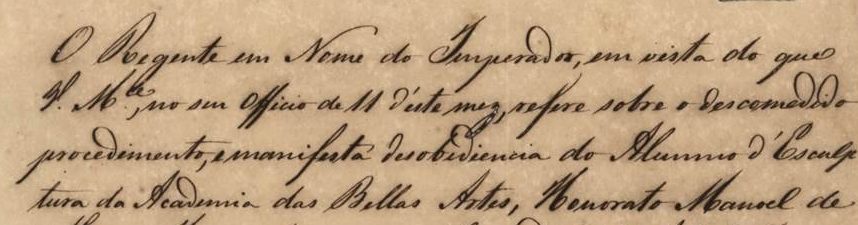 O Regente em Nome do Imperador, em vista do que
V. M.ce, no seu Officio de 11 d'este mez, refere sobre o descomedido
procedimento, e manifesta desobidiencia do Alumno d'Esculp
tura da Academia das Bellas Artes, Honorato Manoel de